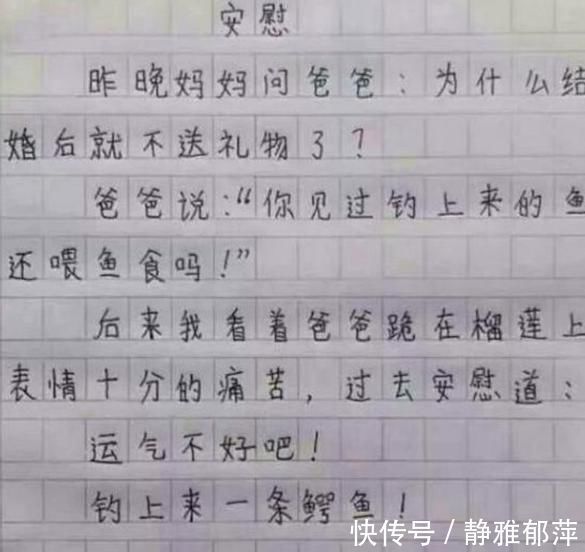 安慰
昨晚妈妈问爸爸:为什么结
婚后就不送礼物了?
爸爸说:“你见过钓上来的鱼
还喂鱼食吗!”
后来我看着爸爸跪在榴莲上
表情十分的痛苦,过去安慰道:
运气不好吧!
钓上来一条鳄鱼!
快传号/静雅郁萍